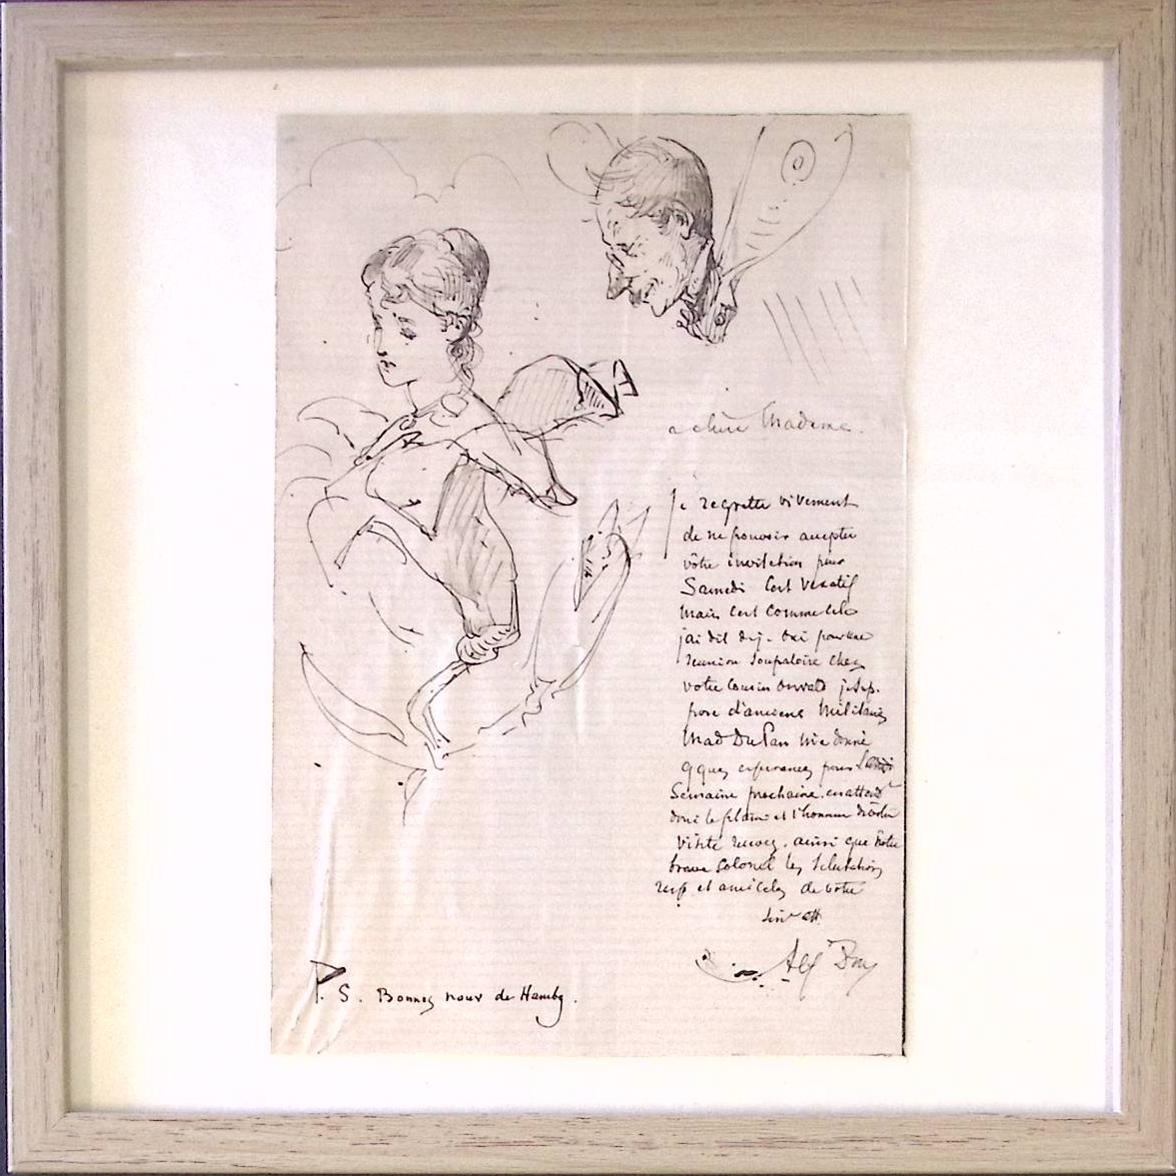 chère Madame.
Je regrette vivement
de ne pouvoir accepter
vôtre invitation pour
Samedi C'est vexatif
mais c'est comme cela
j'ai dit oui pour une
reunion soupatoire chez
votre cousin je sup.
pose d'anciens Militaires
Mad DuPan m'a donné
qques esperances pour
Semaine prochaine. en attend
donc le et l'honneur
visite recevez. ainsi que vôtre
brave Colonel les salutations
resp et amicales de votre
Alf
P. S. Bonnes nouv de Hambg.